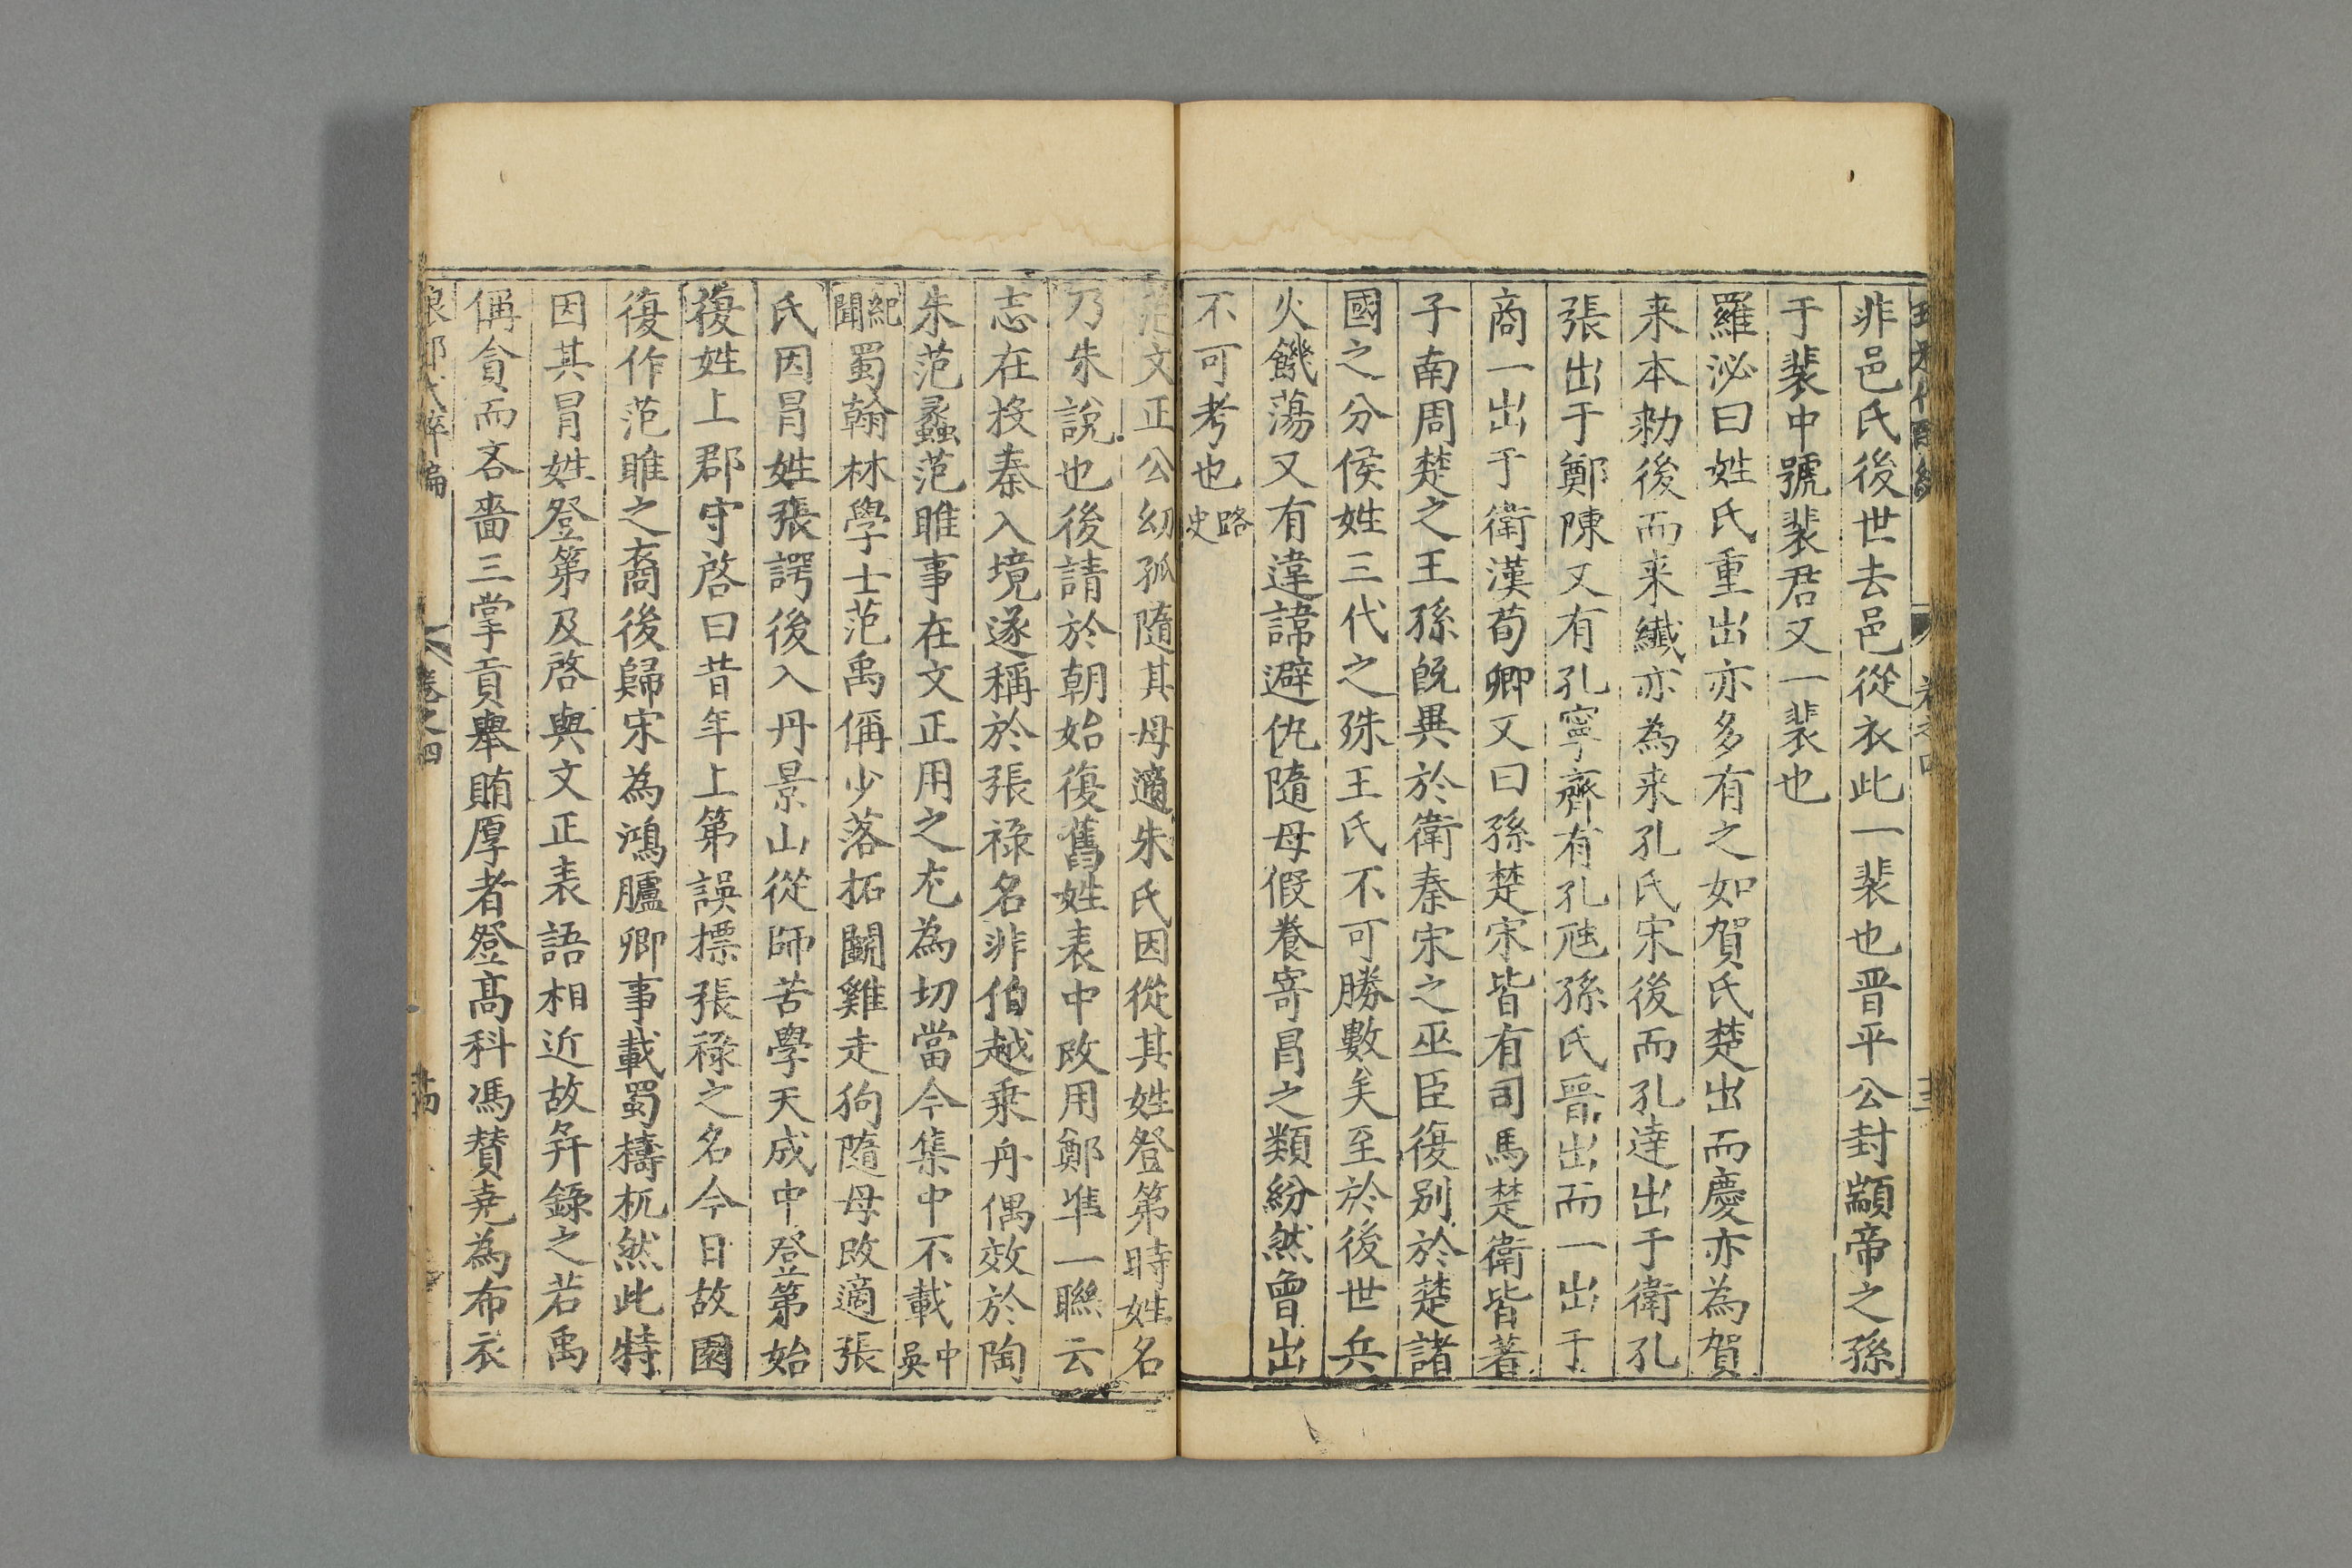 非邑氏後世去邑從衣此一裴也晋平公封顓帝之孫
于裴中號裴君又一裴也
羅泌曰姓氏重出亦多有之如賀氏楚出而慶亦為賀
来本勑後而来纎亦為来孔氏宋後而孔達出于衛孔
張出于鄭陳又有孔寧齊有孔虺孫氏晉出而一出于
商一出于衛漢荀卿又曰孫楚宋皆有司馬楚衛皆著
子南周楚之王孫旣異於衛秦宋之巫臣復别於楚諸
國之分侯姓三代之殊王氏不可勝數矣至於後世兵
火饑蕩又有違諱避仇隨母假養寄冐之類紛然曾出
不可考也路史
范文正公幼孤隨其母適朱氏因從其姓登第時姓名
乃朱說也後請於朝始復舊姓表中改用鄭凖一聯云
志在投秦入境遂稱於張祿名非伯越乗舟偶效於陶
朱范蠡范雎事在文正用之尤為切當今集中不載吳中
紀聞蜀翰林學士范禹偁少落拓鬭雞走狗隨母改適張
氏因冐姓張諤後入丹景山從師苦學天成中登第始
復姓上郡守啓曰昔年上第誤摽張祿之名今日故園
復作范雎之裔後歸宋為鴻臚卿事載蜀檮杌然此特
因其冐姓登第及啓與文正表語相近故幷錄之若禹
偁貪而吝嗇三掌貢舉賄厚者登髙科馮賛堯為布衣
卷之四